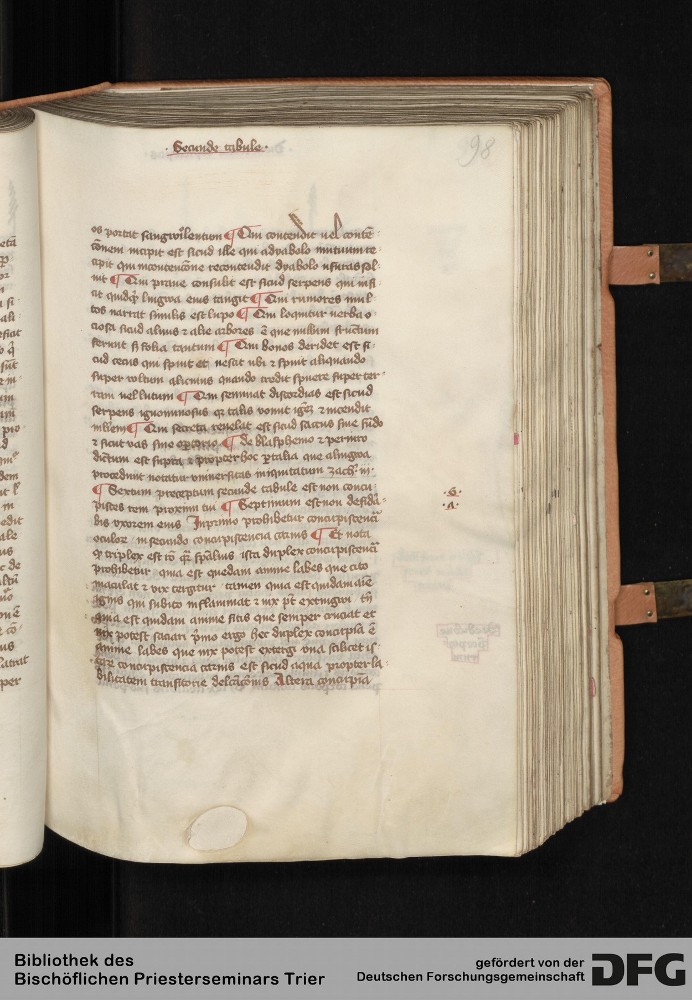 · Secunde tabule ·
98
os portat sangwi̅lentum ¶ Qui contendit vel conte̅
c̅onem incipit est sicud ille qui a dyabolo mutuum re
cipit qui in contenc̅one recontendit dyabolo usuras sol
uit ¶ Qui praue consulit est sicud serpens qui infi
cit quidq̅ lingwa eius tangit ¶ Qui rumores mul
tos narrat similis est lupo ¶ Qui loquitur verba o
ciosa sicud alnus ⁊ alie arbores e̅ que nullum fructum
ferunt s̅ folia tantum ¶ Qui bonos deridet est si
cud cecus qui spuit et nescit ubi ⁊ spuit aliquando
super vultum alicuius quando credit spuere super ter
ram vel lutum ¶ Qui seminat discordias est sicud
serpens ignominosus qr̅ talis vomit ig̅e̅ ⁊ incendit
¶ Qui secreta reuelat est sicud saccus sine fu̅do
⁊ sicut vas sine opertorio ¶ de blasphemo ⁊ periuro
dictum est supra ⁊ propter hoc p̅catalia que a lingwa
procedunt notatur vniuersitas iniquitatum zach̅ iii·
¶ Sextum preceptum secunde tabule est non concu
pisces rem proximi tui ¶ Septimum est non desid̅a
bis vxorem eius In primo prohibetur concupiscenc̅a
oculor̅ in secundo concupiscencia carnis ¶ Et nota
q̅ triplex est ro̅ qr̅ sp̅aliter ista duplex concupiscenc̅a
prohibetur quia est quedam anime labes que cito
maculat ⁊ vix tergitur tamen quia est quidam a̅ie
ignis qui subito inflammat ⁊ vix p̅t extingwi t̅n
quia est quidam anime sitis que semper cruciat et
vix potest saciari p̅mo ergo hec duplex concup̅ia e̅
anime labes que vix potest extergi vna scilicet is
concupiscencia carnis est sicud aqua propter la
bilitatem transitorie delc̅ac̅onis Altera concup̅ia
· 6 ·
· A ·
Bibliothek des
Bischöflichen Priesterseminars Trier
gefördert von der
Deutschen Forschungsgemeinschaft
DFG